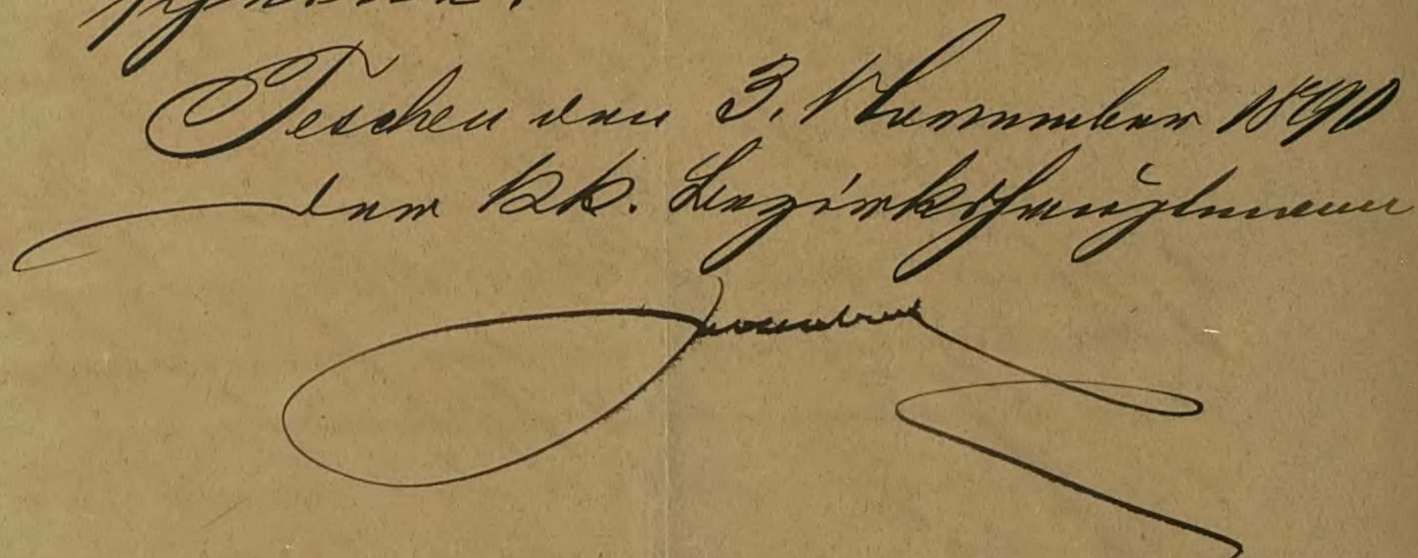 Teschen den 3. November 1890
der k.k. Bezirkshauptmann